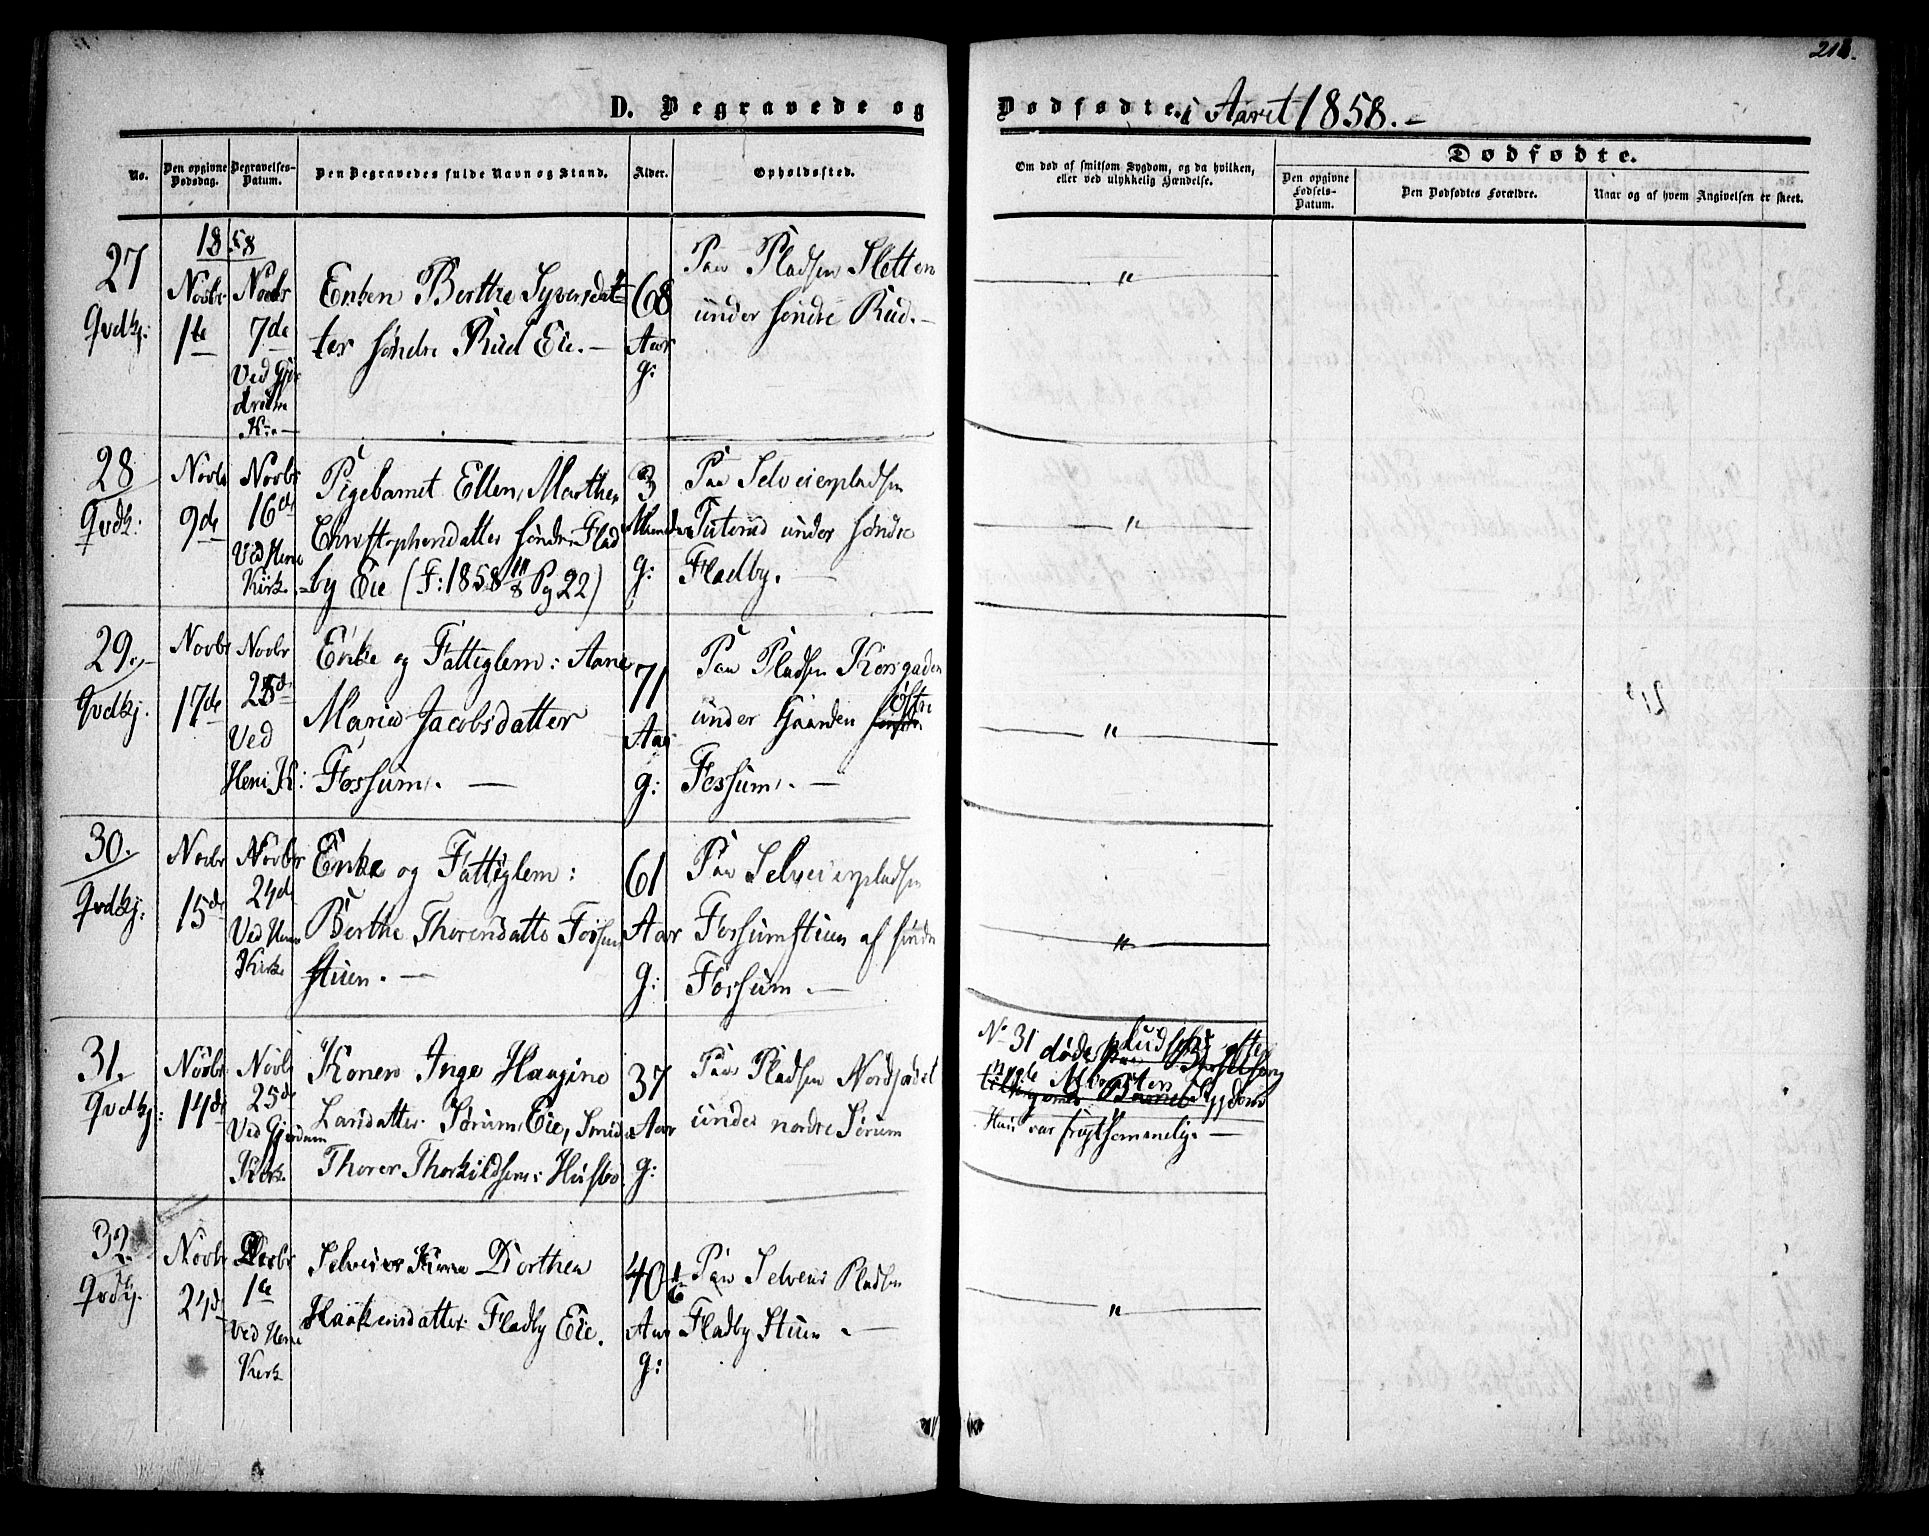 218.
D. Begravede og Dødfødte. i Aaret 1858.-
No.
Den opgivne Dødsdag.
Begravelses-Datum.
Den Begravedes fulde Navn og Stand.
Alder.
Opholdssted.
Om død af smitsom Sygdom, og da hvilken,
eller ved ulykkelig Hændelse.
Dødfødte.
Den opgivne Fødsels-Datum.
Den Dødfødtes Forældre.
Naar og af hvem Angivelsen er skeet.
1858
27
Qvdkj:
Novbr
1te
Novbr
7de
Ved Gjer
drum
K:-
Enken Berthe Syversdat-
ter søndre Rud Eie.-
68
Aar
g:
Paa Pladsen Sletten
under søndre Rud.-
"
28
Qvdk:
Novbr
9de
Novbr
16de
Ved Heni
Kirk.
Pigebarnet Ellen Marthea
Christophersdatter søndre Flad
=by Eie (F: 1858 19/8 Pg 22)
3
Maaneder
g:
Paa Selveierpladsen
Tuterud under søndre
Fladby.-
"
29.-
Qvdkj.
Novbr
17de
Novbr
25de
Ved
Heni K:
Enke og Fattiglem: Anne
Maria Jacobsdatter
Fossum.-
71
Aar
g:
Paa Pladsen Korsgaden
under Gaarden søndre østre
Fossum.-
"
30.
Qvdkj:
Novbr
15de
Novbr
24de
Ved Heni
Kirke
Enke og Fattiglem:
Berthe Thorersdatter Fossum
stuen.-
61
Aar
g:
Paa Selveierpladsen
Fossumstuen af søndre
Fossum.-
"
31.
Qvdkj:
Novbr
14de
Novbr
25de
Ved Gjerdrum
Kirk.
Konen Inge Haagine
Larsdatter Sørum Eie, Smed
Thorer Thorkildsens Hustro
37
Aar
g:
Paa Pladsen Nordjødet
under nordre Sørum
No 31 døde pludselig efter
Hun var frugtsommelig.-
32.
Qvdkj.
Novbr
24de
Decbr
1te
Ved Heni
Kirk
Selveier Kone Dorthea
Haakensdatter Fladby Eie.
40 1/6
Aar
g:
Paa Selveier Pladsen
Fladby Stuen.-
"